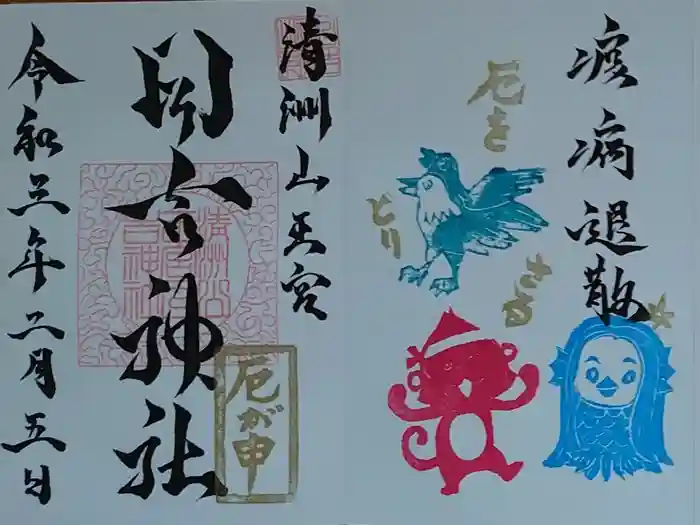 疫病退散
厄を
とり
さる
清洲山王宮
日吉神社
厄が申
令和三年二月五日